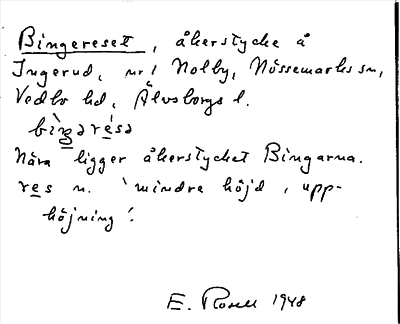 Bingereset, åkerstycke å
Ingerud, nr 1 Nolby, Nössemarks sn,
Vedbo hd, Älvsborgs l.
bìŋərésə
Nära ligger åkerstycket Bingarna.
res n. 'mindre höjd, upp-
höjning'.
E. Rosell 1948